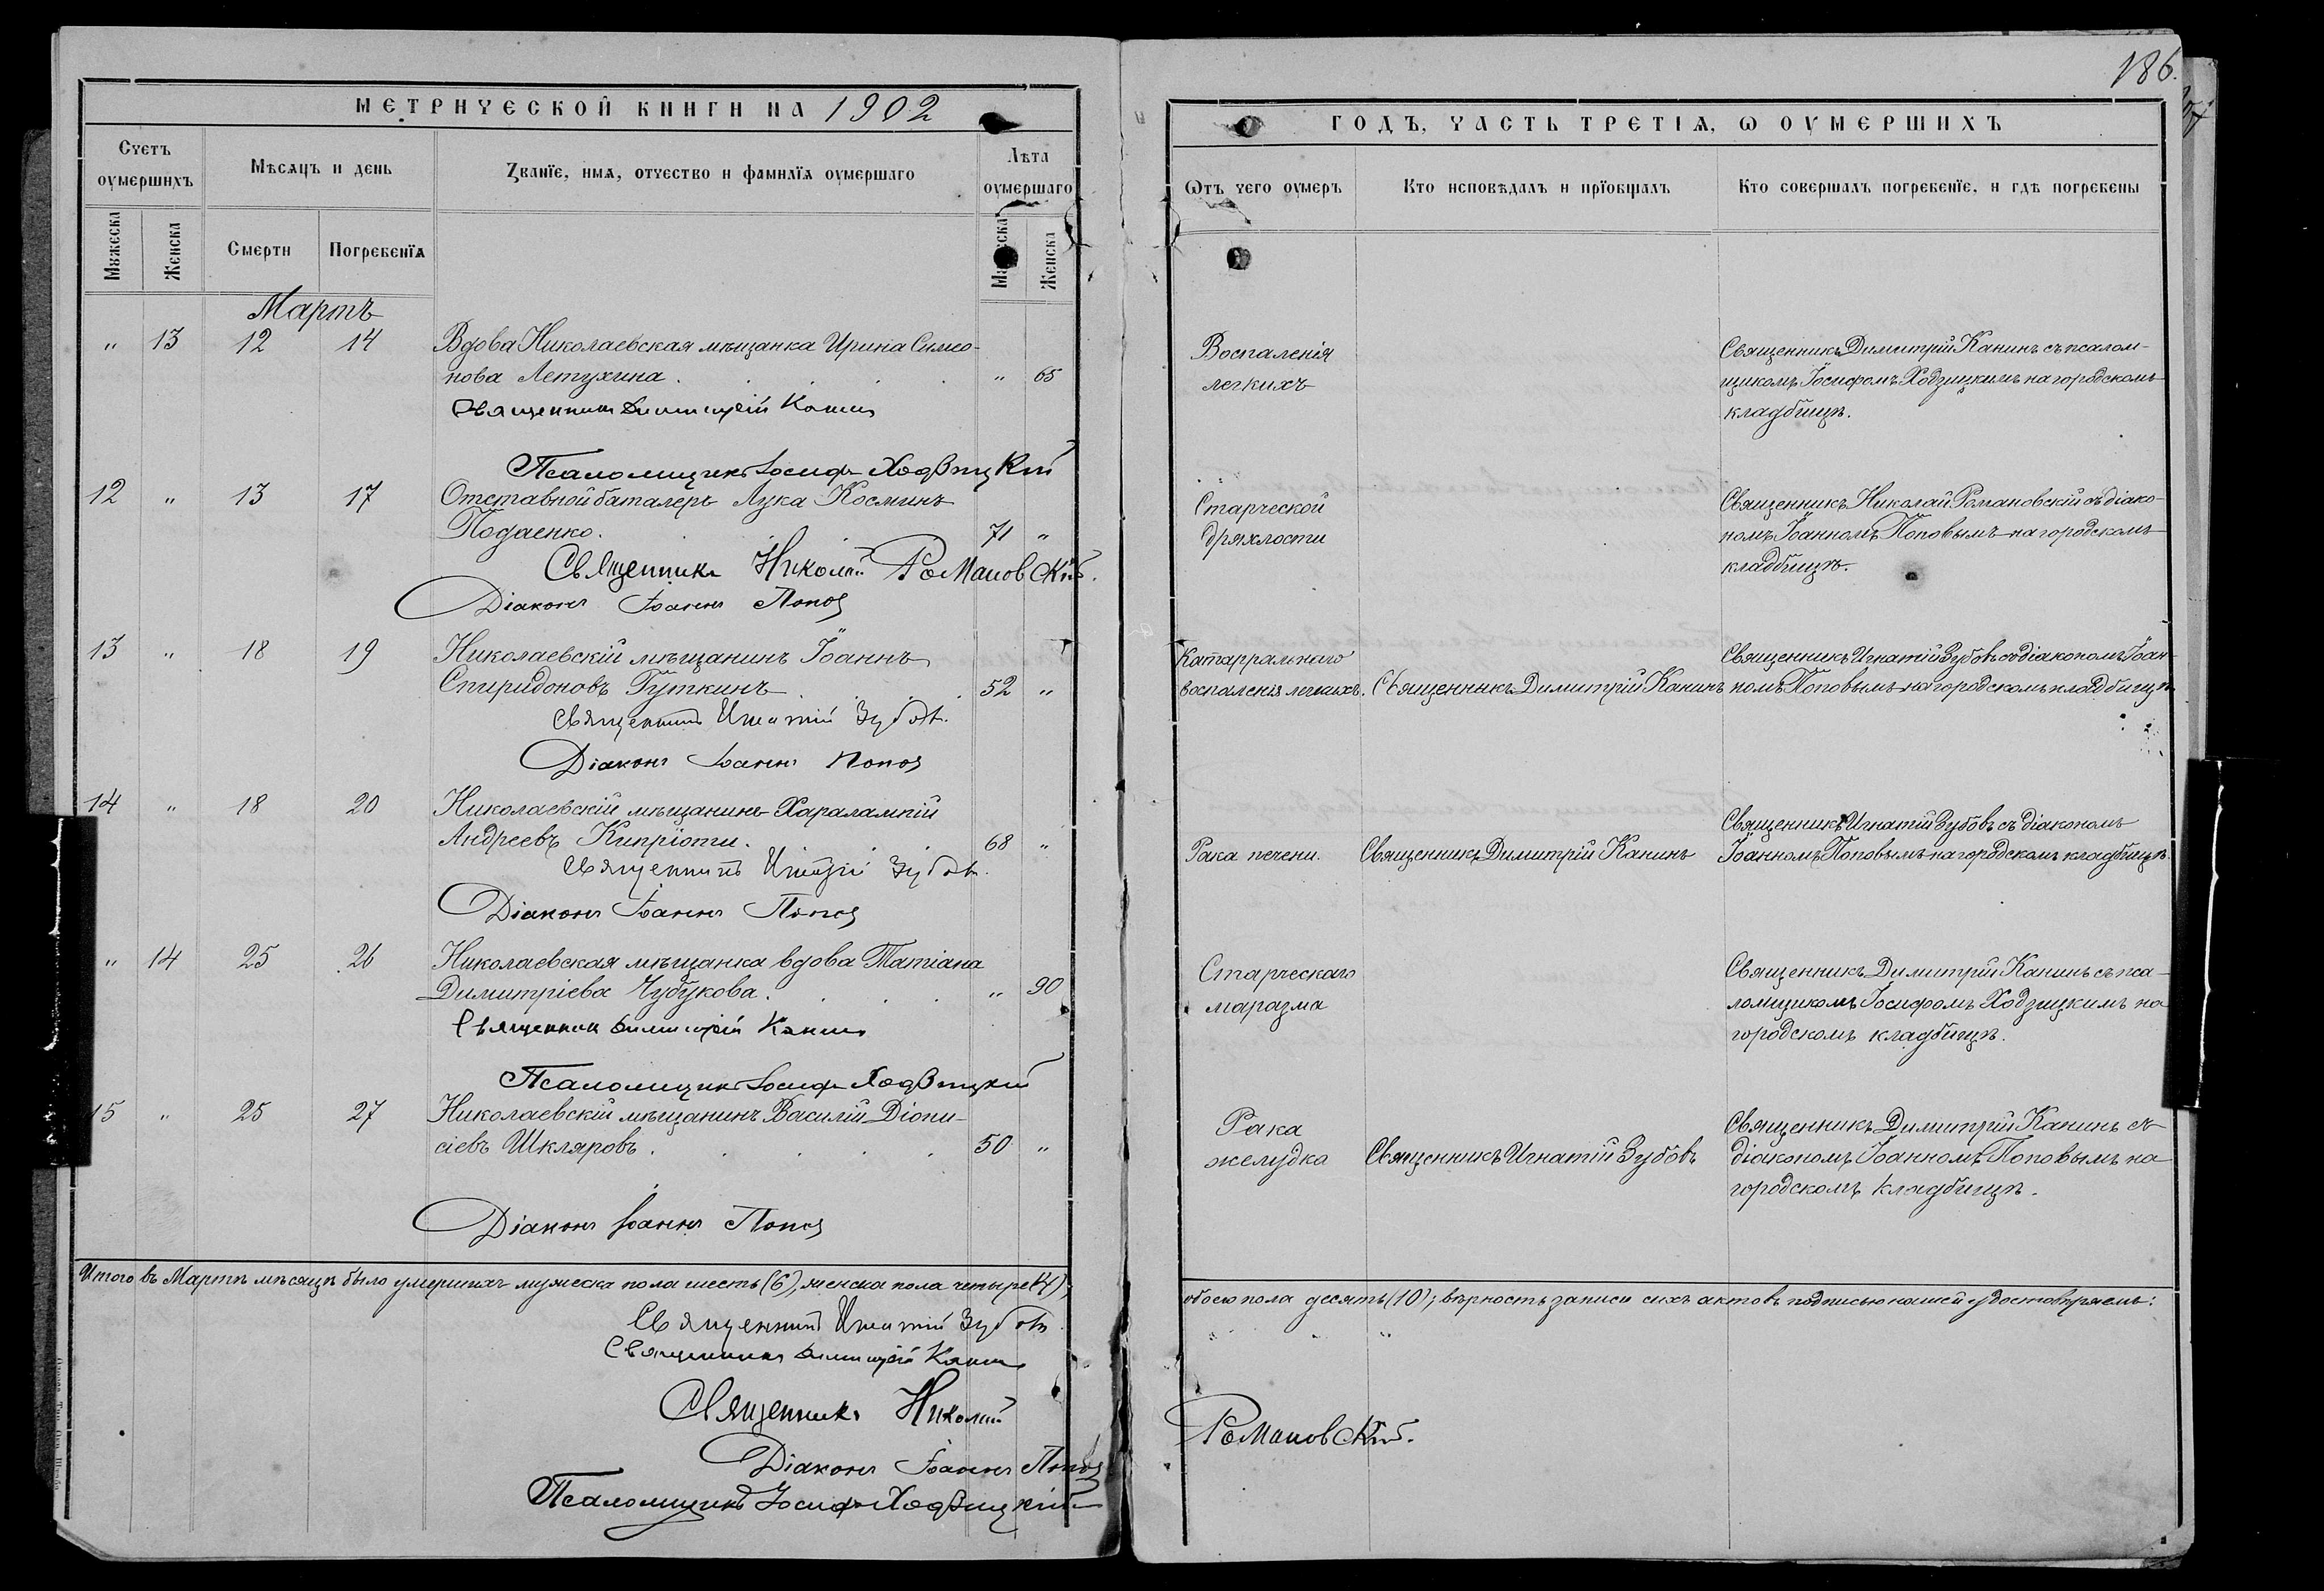 186.
МЕТРИЧЕСКОЙ КНИГИ НА 1902
ГОДЪ, ЧАСТЬ ТРЕТІѦ, Ѡ ОУМЕРШИХЪ
Счетъ оумершихъ
Мѣсяцъ и день
Званїе, имѧ, отчество и фамилїѧ оумершаго
Лѣта оумершаго
Ѿтъ чего оумеръ
Кто исповѣдалъ и прїобщалъ
Кто совершалъ погребенїе, и гдѣ погребены
Мужеска
Женска
Смерти
Погребенїѧ
Мужеска
Женска
Мартъ
" 13 12 14 Вдова Николаевская мѣщанка Ирина Симео-
нова Летухина . . . . . " 65
Воспаленія
легкихъ
Священникъ Димитрій Канинъ съ псалом-
щикомъ Іосифомъ Ходзицкимъ на городскомъ
кладбищѣ.
Священникъ Димитрій Канинъ
Псаломщикъ Іосифъ Ходзицкій
12 " 13 17 Отставной баталеръ Лука Косминъ
Подаенко. 71 "
Старческой
дряхлости
Священникъ Николай Романовскій съ діако-
номъ Іоанномъ Поповымъ на городскомъ
кладбищѣ.
Священникъ Николай Романовскій.
Діаконъ Іоаннъ Поповъ
13 " 18 19 Николаевскій мѣщанинъ Іоаннъ
Спиридоновъ Гуткинъ . . . . 52 "
Катарральнаго
воспаленія легкихъ.
Священникъ Димитрій Канинъ
Священникъ Игнатій Зубовъ съ діакономъ Іоан-
номъ Поповымъ на городскомъ кладбищѣ
Священникъ Игнатій Зубовъ.
Діаконъ Іоаннъ Поповъ
14 " 18 20 Николаевскій мѣщанинъ Харалампій
Андреевъ Кипріоти. . . . 68 "
Рака печени.
Священникъ Димитрій Канинъ
Священникъ Игнатій Зубовъ съ діакономъ
Іоанномъ Поповымъ на городскомъ кладбищѣ.
Священникъ Игнатій Зубовъ.
Діаконъ Іоаннъ Поповъ
" 14 25 26 Николаевская мѣщанка вдова Татіана
Димитріева Чубукова. . . . " 90
Старческаго
маразма
Священникъ Димитрій Канинъ съ пса-
ломщикомъ Іосифомъ Ходзицкимъ на
городскомъ кладбищѣ.
Священникъ Димитрій Канинъ
Псаломщикъ Іосифъ Ходзицкій
15 " 25 27 Николаевскій мѣщанинъ Василій Діони-
сіевъ Шкляровъ . . . . . 50 "
Рака
желудка
Священникъ Игнатій Зубовъ
Священникъ Димитрій Канинъ съ
діакономъ Іоанномъ Поповымъ на
городскомъ кладбищѣ.
Діаконъ Іоаннъ Поповъ
Итого въ Мартѣ мѣсяцѣ было умершихъ мужеска пола шесть (6), женска пола четыре (4);
обоего пола десять (10); вѣрность записи сихъ актовъ подписью нашей удостовѣряемъ:
Священникъ Игнатій Зубовъ
Священникъ Димитрій Канинъ
Священникъ Николай Романовскій.
Діаконъ Іоаннъ Поповъ
Псаломщикъ Іосифъ Ходзицкій